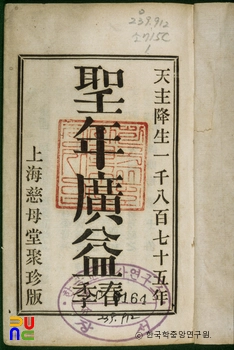 天主降生一千八百七十五年
聖年廣益
春季
上海慈母堂聚珍版
239.912
1
161
239.912
ⓒ한국학중앙연구원